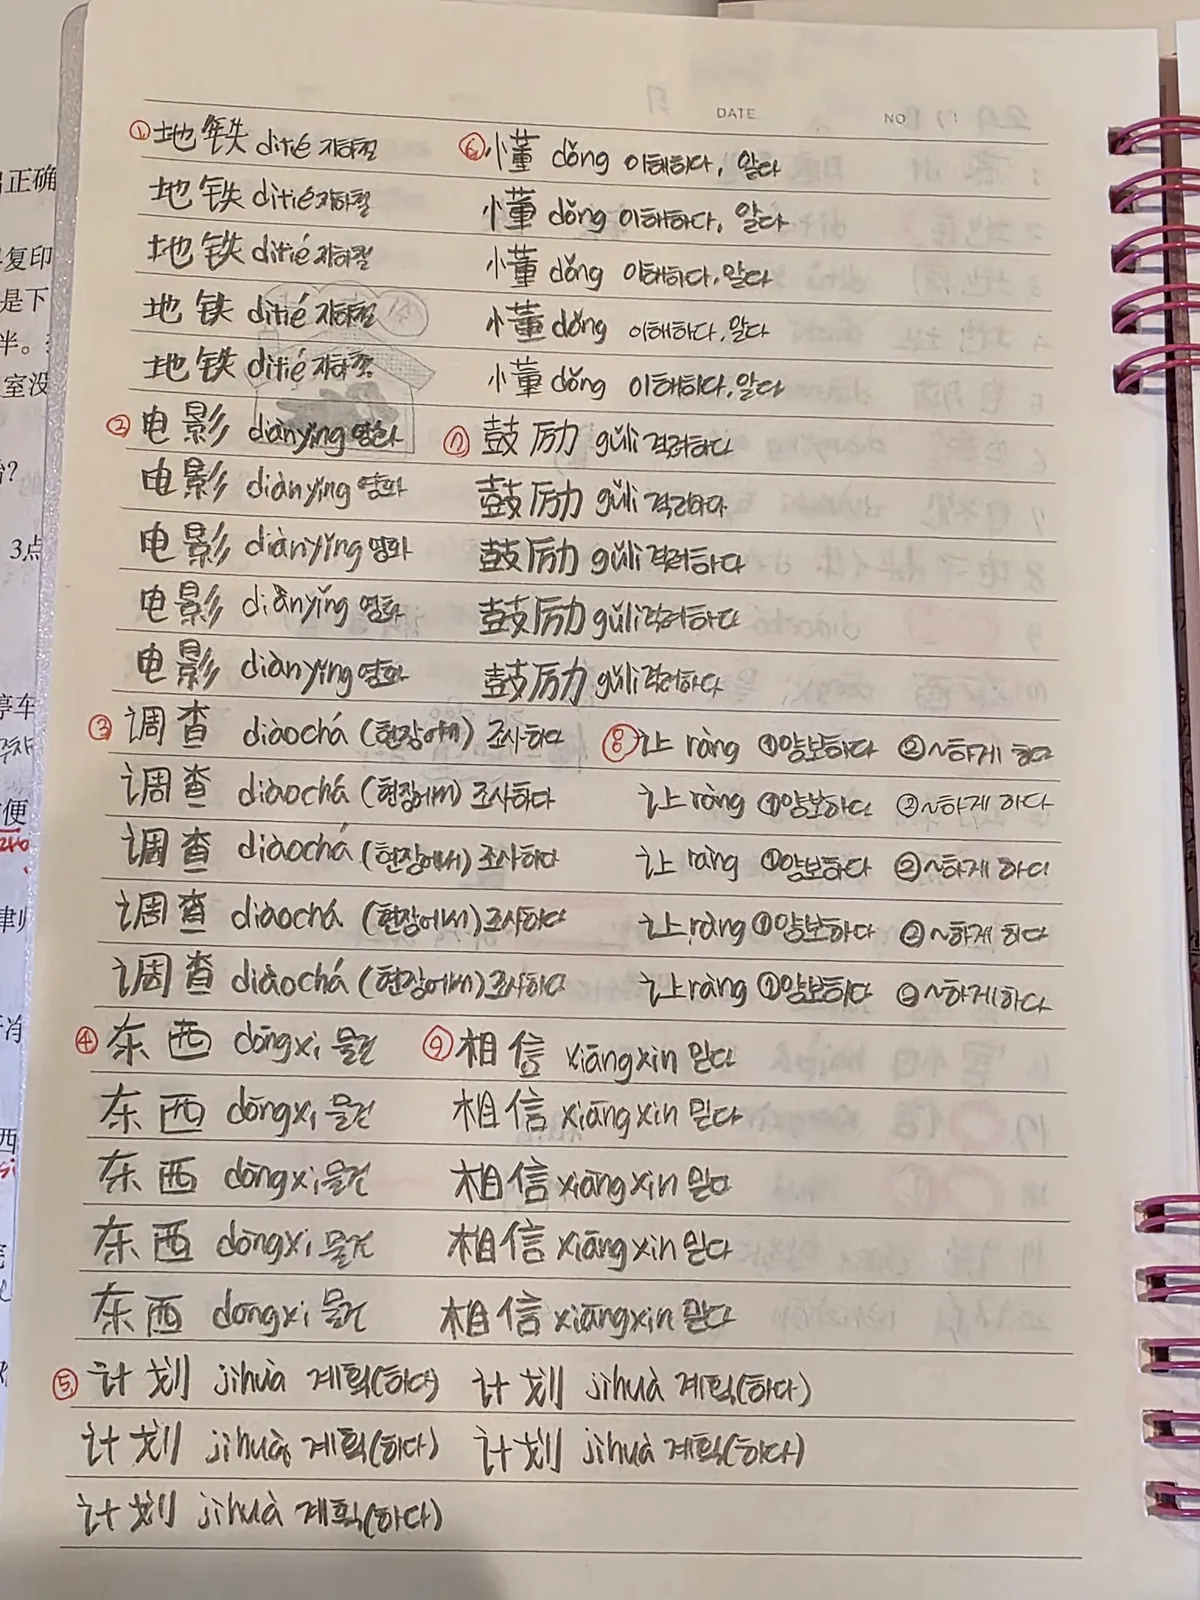 DATE
NO
① 地铁 ditié 지하철 ⑥ 懂 dǒng 이해하다, 알다
地铁 ditié 지하철 懂 dǒng 이해하다, 알다
地铁 ditié 지하철 懂 dǒng 이해하다, 알다
地铁 ditié 지하철 懂 dǒng 이해하다, 알다
地铁 ditié 지하철 懂 dǒng 이해하다, 알다
② 电影 diànyǐng 영화 ⑦ 鼓励 gǔli 격려하다
电影 diànyǐng 영화 鼓励 gǔli 격려하다
电影 diànyǐng 영화 鼓励 gǔli 격려하다
电影 diànyǐng 영화 鼓励 gǔli 격려하다
电影 diànyǐng 영화 鼓励 gǔli 격려하다
③ 调查 diàochá (현장에서) 조사하다 ⑧ 让 ràng ①양보하다 ②~하게 하다
调查 diàochá (현장에서) 조사하다 让 ràng ①양보하다 ②~하게 하다
调查 diàochá (현장에서) 조사하다 让 ràng ①양보하다 ②~하게 하다
调查 diàochá (현장에서) 조사하다 让 ràng ①양보하다 ②~하게 하다
调查 diàochá (현장에서) 조사하다 让 ràng ①양보하다 ②~하게 하다
④ 东西 dōngxi 물건 ⑨ 相信 xiāngxin 믿다
东西 dōngxi 물건 相信 xiāngxin 믿다
东西 dōngxi 물건 相信 xiāngxin 믿다
东西 dōngxi 물건 相信 xiāngxin 믿다
东西 dōngxi 물건 相信 xiāngxin 믿다
⑤ 计划 jìhuà 계획(하다) 计划 jìhuà 계획(하다)
计划 jìhuà 계획(하다) 计划 jìhuà 계획(하다)
计划 jìhuà 계획(하다)
正确
复印
是下
半。
室没
3点
停车
便
律师
西